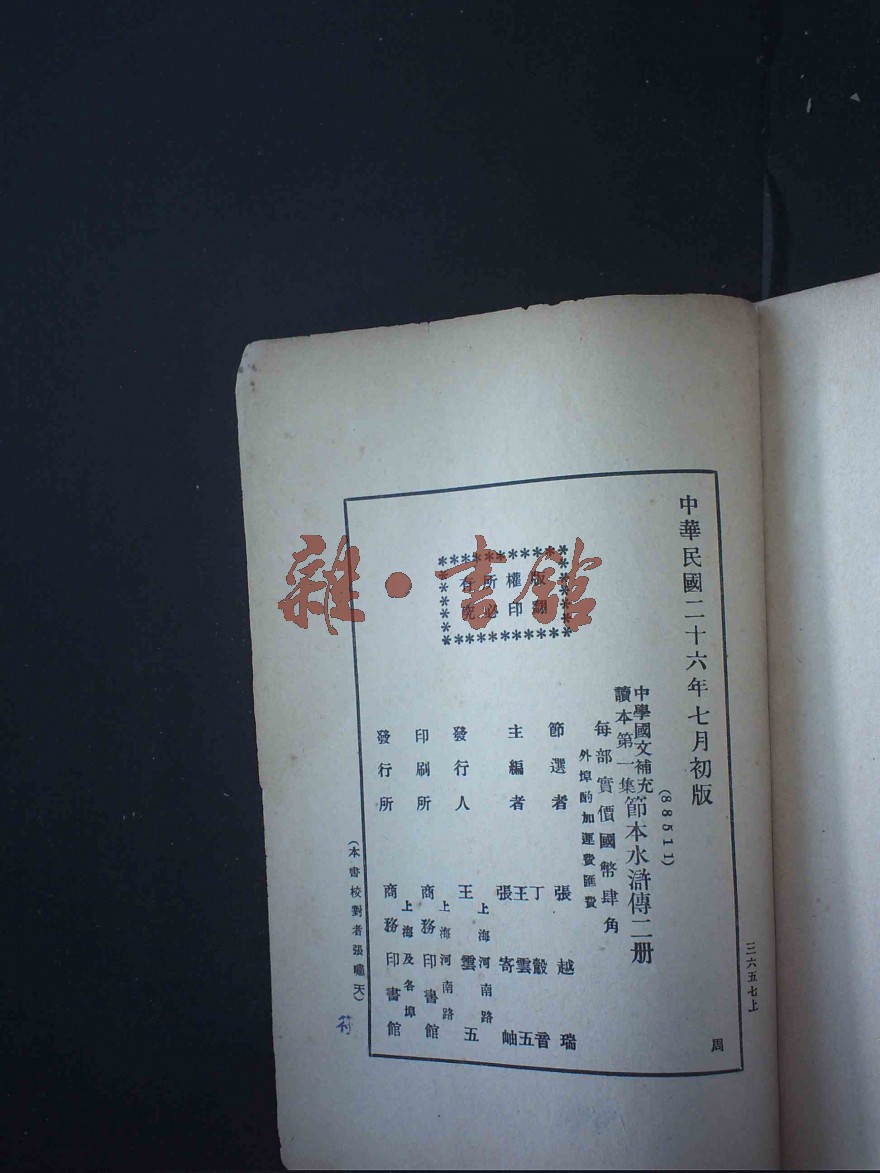 中華民國二十六年七月初版
(88511)
中學國文補充
讀本第一集
節本水滸傳二册
每部實價國幣肆角
外埠酌加運費匯費
版權所有
翻印必究
節選者 張越瑞
主編者
丁㲄音
王雲五
張寄岫
發行人
上海河南路
王雲五
印刷所
上海河南路
商務印書館
發行所
上海及各埠
商務印書館
(本書校對者張嘯天)
三六五七上
周
雜·書館